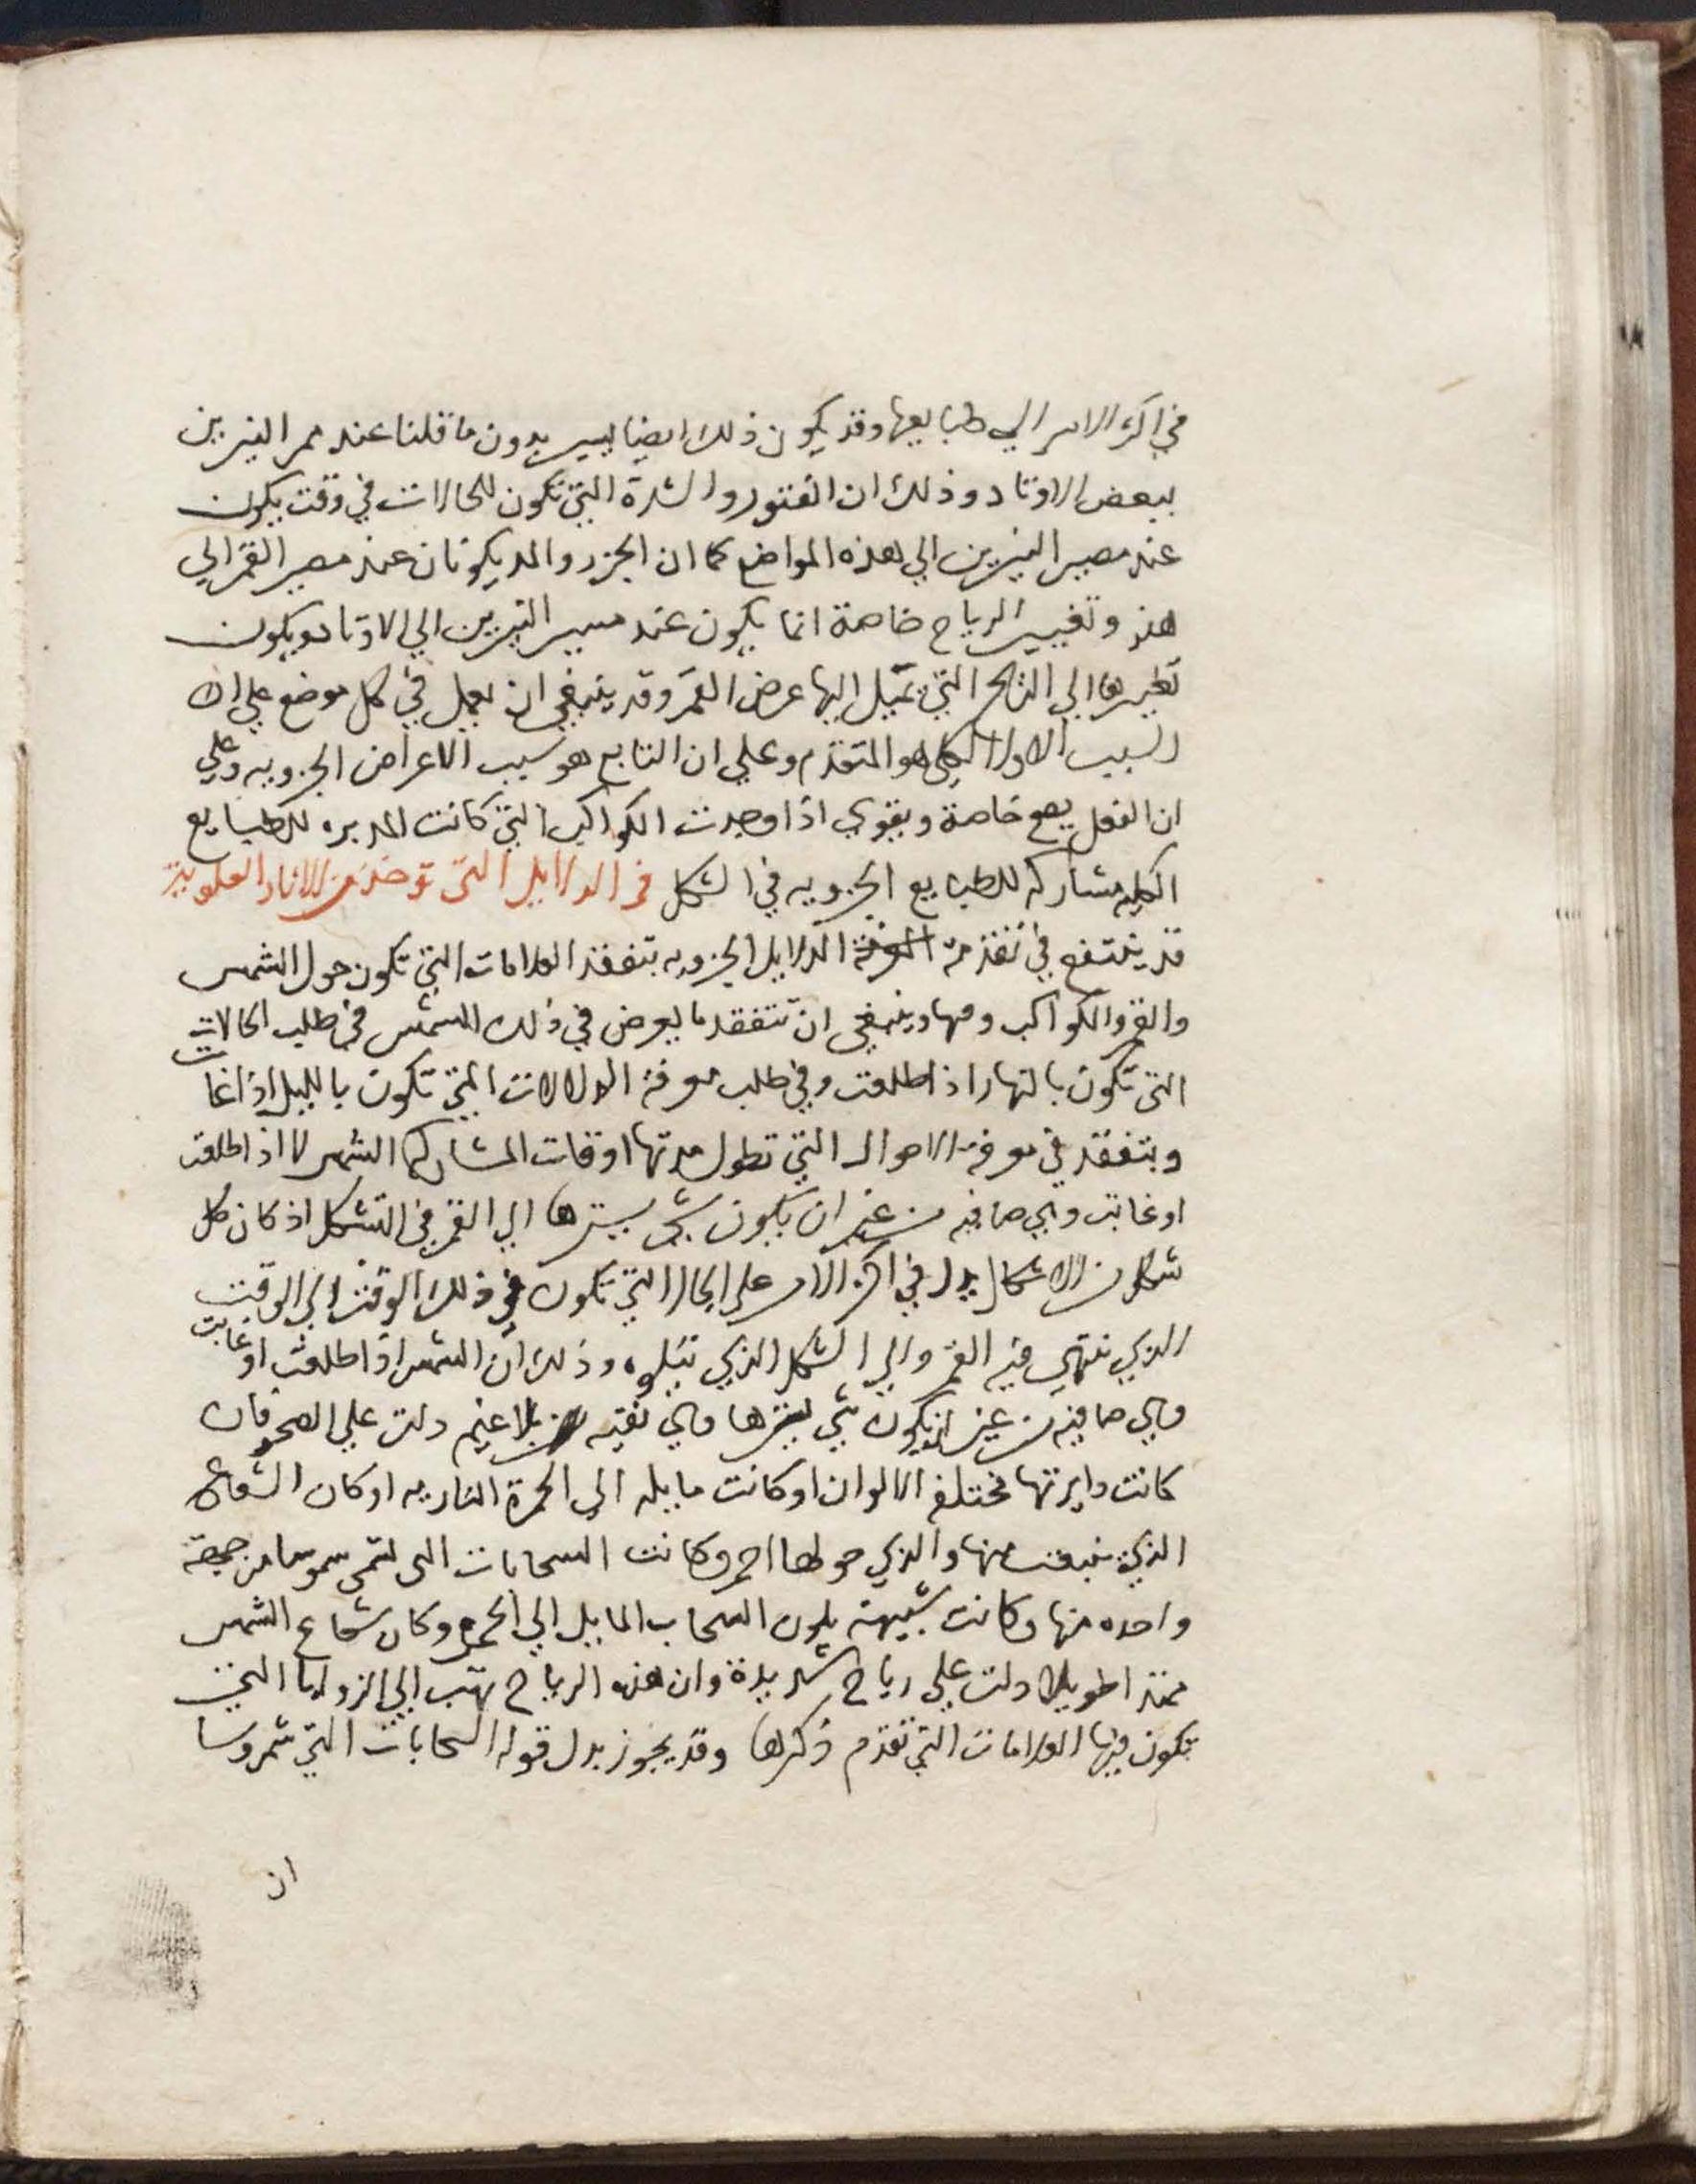 في اكثر الامر الي طبايعها وقد يكون ذلك ايضا يسير بدون ما قلنا عند ممر النيرين
ببعض الاوتاد وذلك ان الفتور والشدة التي تكون للحالات في وقت يكون
عند مصير النيرين الي هذه المواضع كما ان الجزر والمد يكونان عند مصير القمر الي
هذه وتغيير الرياح خاصة انما يكون عند مسير النيرين الي الاوتاد ويكون
تغيرها الي الناحـ التي تميل اليها عرض القمر وقد ينبغي ان يعمل في كل موضع علي ان
السبب الاول الكلي هو المتقدم وعلي ان التابع هو سبب الاعراض الجزويه وعلي
ان الفعل يصح خاصة ويقوي اذا وجدت الكواكب التي كانت المدبره للطبايع
الكليه مشاركه للطبايع الجزويه في الشكل في الدلايل التي توخذ من الاثار العلوية
قد ينتفع في تقدمة المعرفة الدلايل الجزويه بتفقد العلامات التي تكون حول الشمس
والقمر والكواكب ومهما وينبغي ان تتفقد ما يعرض في ذلك للشمس في طلب الحالات
التي تكون بالنهار اذا طلعت وفي طلب معرفة الدلالات التي تكون بالليل اذا غابت
وبتفقد في معرفة الاحوال التي تطول مدتها اوقات المشاركة الشمس لا اذا طلعت
او غابت وهي صافيه من غير ان يكون شي يسترها الي القمر في التشكل اذ كان كل
شكل من الاشكال يدل في اكثر الامر علي الحال التي تكون في ذلك الوقت الي الوقت
الذي ننتهي فيه القمر والي الشكل الذي تتلوه وذلك ان الشمس اذا طلعت او غابت
وهي صافيه من غير ان يكون شي يسترها وهي نقيه بلا غيم دلت علي الصحو فان
كانت دايرتها مختلفة الالوان او كانت مايله الي الحمرة الناريه او كان الشعاع
الذي ينبعث منها والذي حولها احمر وكانت السحابات التي تسمي سموسا من جهة
واحده منها وكانت شبيهة بلون السحاب المايل الي الحمرة وكان شعاع الشمس
ممتدا طويلا دلت علي رياح شديدة وان هذه الرياح تهب الي الزوايا التي
تكون فيها العلامات التي تقدم ذكرها وقد يجوز بدل قوله السحابات التي تمروسا
ان